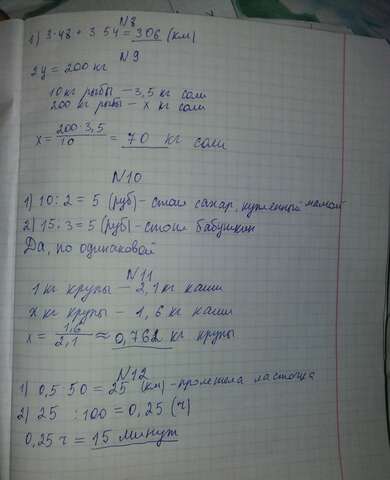 N8
1) 3·48 + 3·54 = 306 (км)
N9
2ц = 200 кг
10 кг рыбы — 3,5 кг соли
200 кг рыбы — x кг соли
x = 200·3,5/10 = 70 кг соли
N10
1) 10 : 2 = 5 (руб) - стоил сахар, купленный мамой
2) 15 : 3 = 5 (руб) - стоил бабушкин
Да, по одинаковой
N11
1 кг крупы — 2,1 кг каши
x кг крупы — 1,6 кг каши
x = 1,6/2,1 ≈ 0,762 кг крупы
N12
1) 0,5·50 = 25 (км) - пролетела ласточка
2) 25 : 100 = 0,25 (ч)
0,25 ч = 15 минут